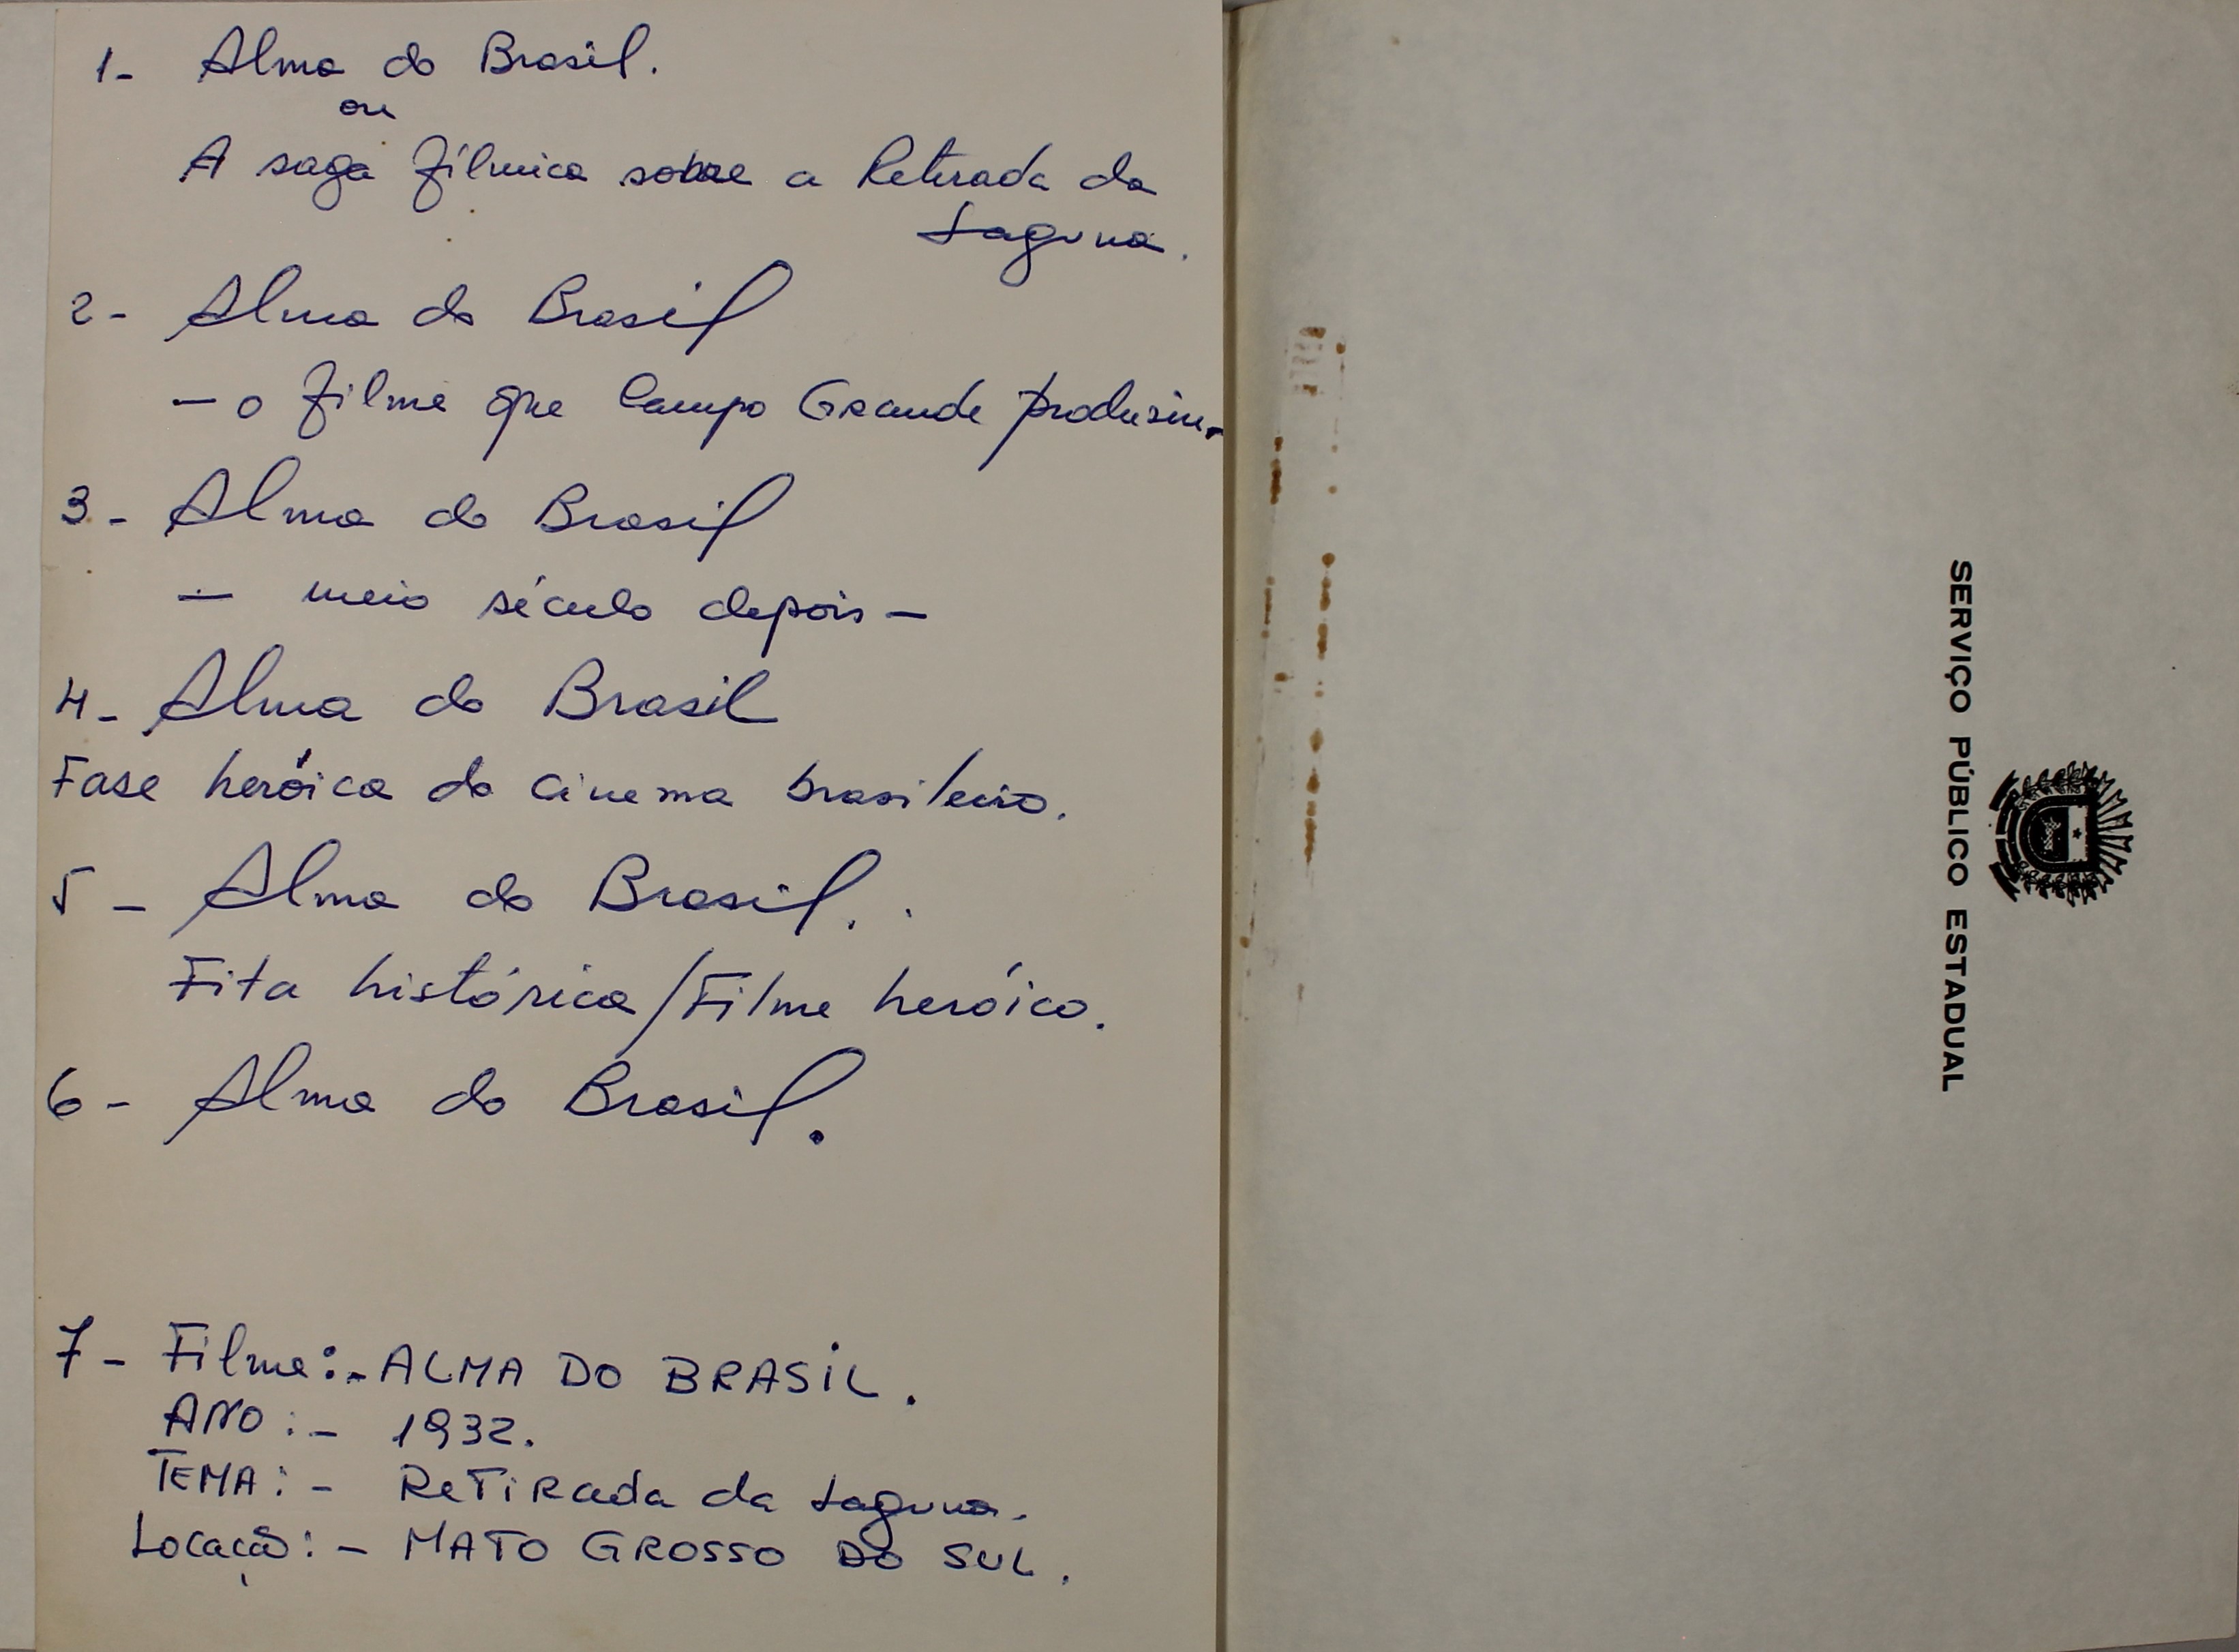 1- Alma do Brasil.
ou
A saga fílmica sobre a Retirada da
Laguna.
2- Alma do Brasil
- o filme que Campo Grande produziu.
3- Alma do Brasil
- meio século depois -
4- Alma do Brasil
Fase heróica do cinema brasileiro.
5- Alma do Brasil.
Fita histórica/Filme heróico.
6- Alma do Brasil.
7- Filme:- ALMA DO BRASIL.
ANO:- 1932.
TEMA:- ReTiRada da Laguna.
Locação:- MATO GROSSO DO SUL.
SERVIÇO PÚBLICO ESTADUAL